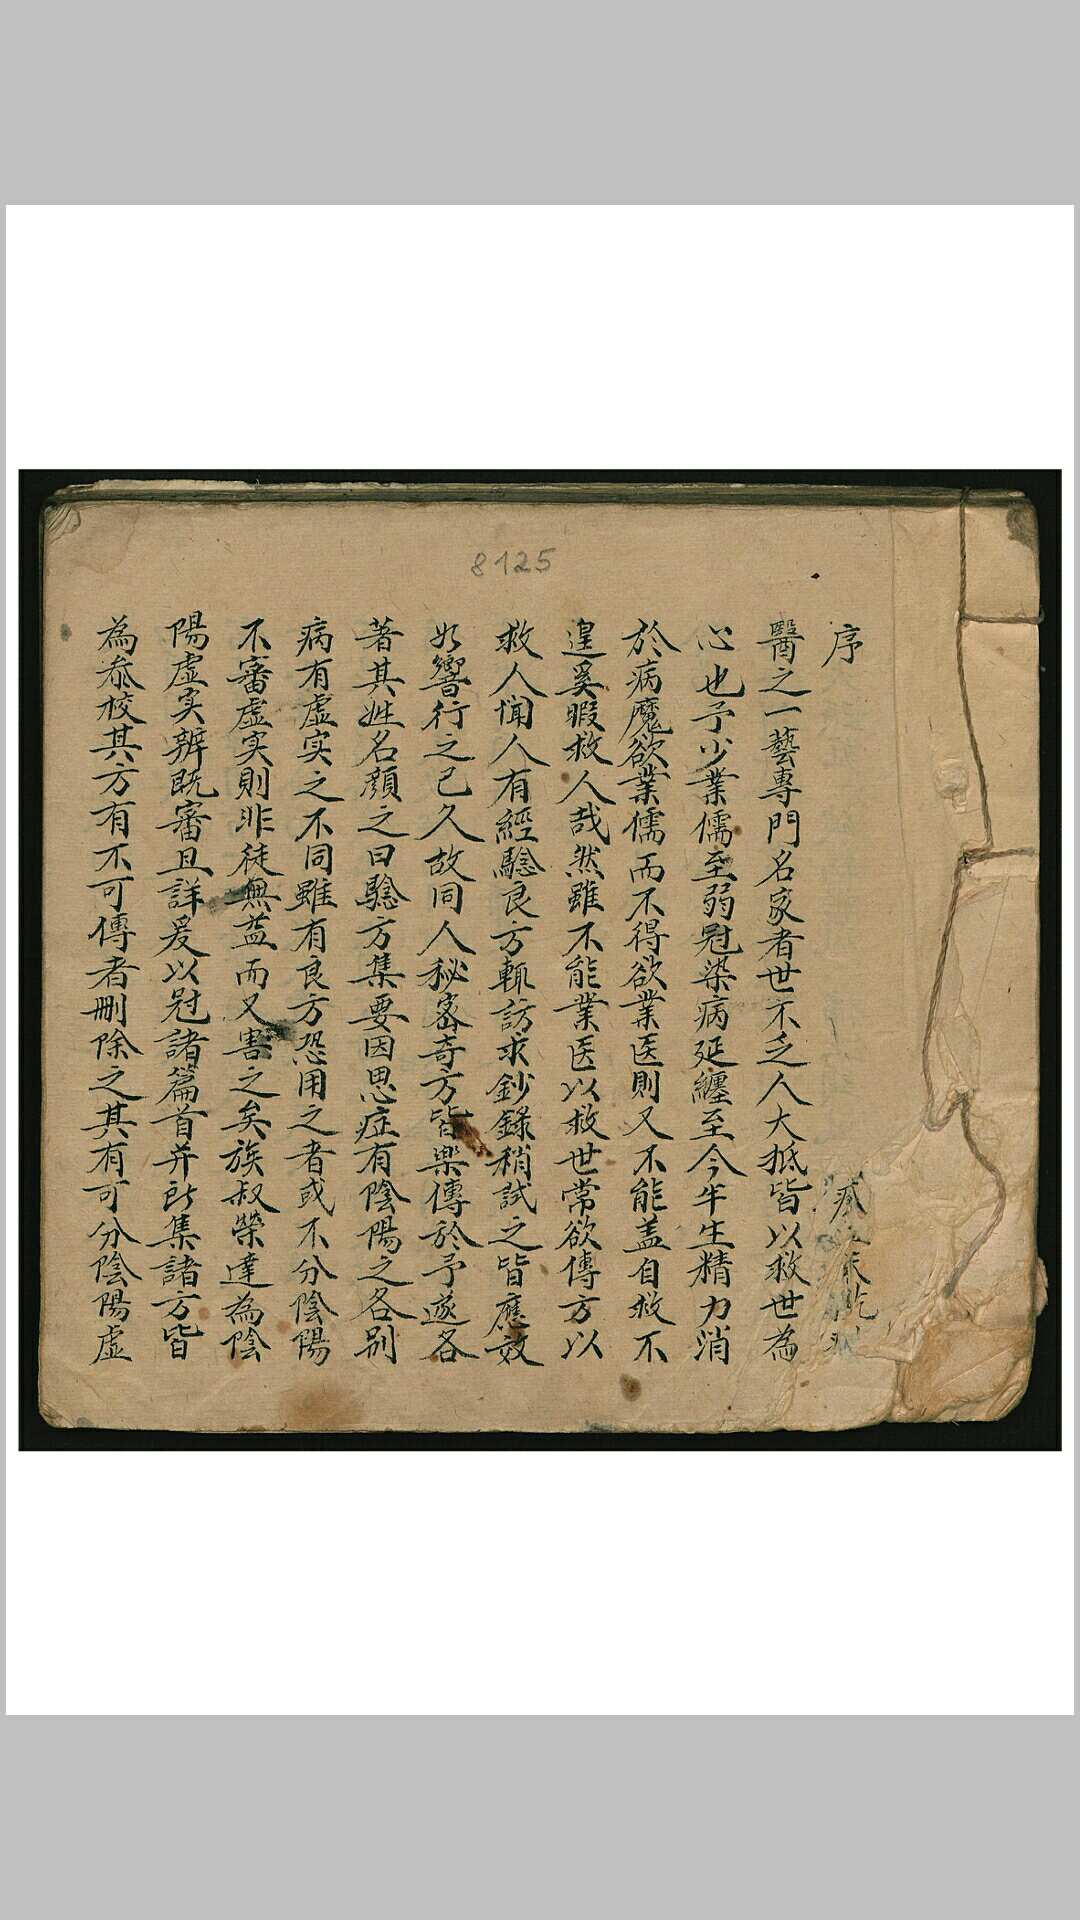 8125
序
醫之一藝專門名家者世不乏人大抵皆以救世為
心也予少業儒至弱冠染病延纏至今半生精力消
於病魔欲業儒而不得欲業医則又不能盖自救不
遑奚暇救人哉然雖不能業医以救世常欲傳方以
救人聞人有經驗良方輒訪求鈔錄稍試之皆應效
如響行之已久故同人秘密奇方皆樂傳於予遂各
著其姓名顏之曰驗方集要因思症有陰陽之各别
病有虛实之不同雖有良方恐用之者或不分陰陽
不審虛实則非徒無益而又害之矣族叔榮達為陰
陽虛实辨既審且詳爰以冠諸篇首并所集諸方皆
為叅校其方有不可傳者刪除之其有可分陰陽虛